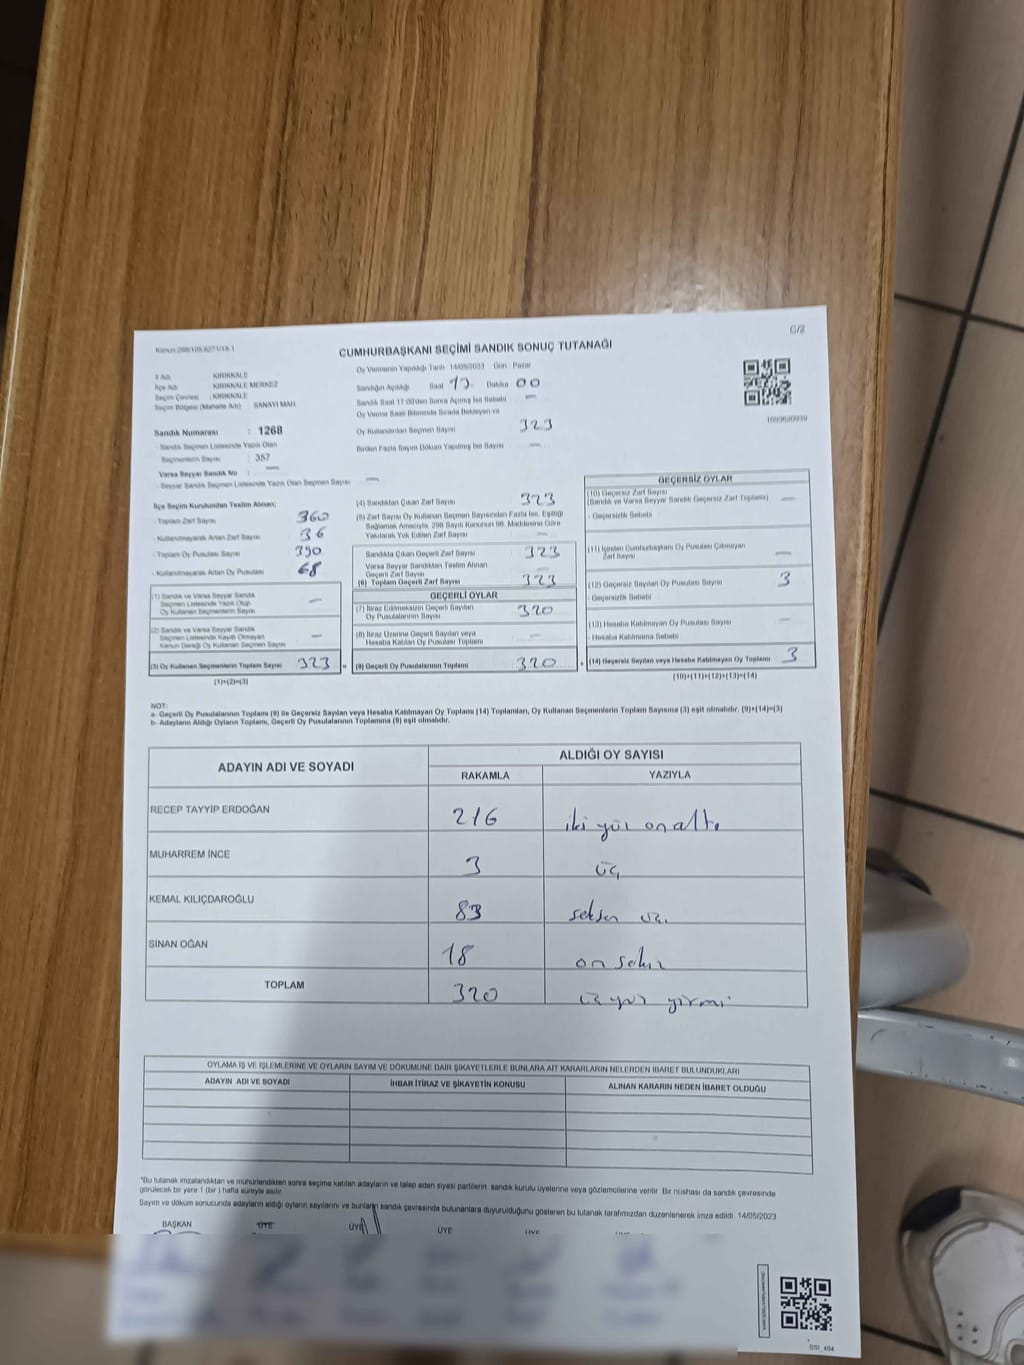 C/2
CUMHURBAŞKANI SEÇİMİ SANDIK SONUÇ TUTANAĞI
İl Adı : KIRIKKALE
İlçe Adı : KIRIKKALE MERKEZ
Seçim Çevresi : KIRIKKALE
Seçim Bölgesi (Mahalle Adı) : SANAYİ MAH
Sandık Numarası : 1268
Sandık Seçmen Listesinde Yazılı Olan
Seçmenlerin Sayısı : 357
Varsa Seyyar Sandık No : —
Seyyar Sandık Seçmen Listesinde Yazılı Olan Seçmen Sayısı —
Oy Vermenin Yapıldığı Tarih :14/05/2023 Gün : Pazar
Sandığın Açıldığı Saat 17 Dakika 00
Sandık Saat 17:00'den Sonra Açılmış İse Sebebi —
Oy Verme Saati Bitiminde Sırada Bekleyen ve
Oy Kullandırılan Seçmen Sayısı 323
Birden Fazla Sayım Döküm Yapılmış İse Sayısı —
İlçe Seçim Kurulundan Teslim Alınan;
- Toplam Zarf Sayısı 360
- Kullanılmayarak Artan Zarf Sayısı 36
- Toplam Oy Pusulası Sayısı 390
- Kullanılmayarak Artan Oy Pusulası 68
(1) Sandık ve Varsa Seyyar Sandık
Seçmen Listesinde Yazılı Olup
Oy Kullanan Seçmenlerin Sayısı —
(2) Sandık ve Varsa Seyyar Sandık
Seçmen Listesinde Kayıtlı Olmayan
Kanun Gereği Oy Kullanan Seçmen Sayısı —
(3) Oy Kullanan Seçmenlerin Toplam Sayısı 323 =
(1)+(2)=(3)
(4) Sandıktan Çıkan Zarf Sayısı 323
(5) Zarf Sayısı Oy Kullanan Seçmen Sayısından Fazla İse, Eşitliği
Sağlamak Amacıyla, 298 Sayılı Kanunun 98. Maddesine Göre
Yakılarak Yok Edilen Zarf Sayısı —
Sandıkta Çıkan Geçerli Zarf Sayısı 323
Varsa Seyyar Sandıktan Teslim Alınan
Geçerli Zarf Sayısı —
(6) Toplam Geçerli Zarf Sayısı 323
GEÇERLİ OYLAR
(7) İtiraz Edilmeksizin Geçerli Sayılan
Oy Pusulalarının Sayısı 320
(8) İtiraz Üzerine Geçerli Sayılan veya
Hesaba Katılan Oy Pusulası Toplamı —
(9) Geçerli Oy Pusulalarının Toplamı 320 +
GEÇERSİZ OYLAR
(10) Geçersiz Zarf Sayısı
(Sandık ve Varsa Seyyar Sandık Geçersiz Zarf Toplamı) —
- Geçersizlik Sebebi
(11) İçinden Cumhurbaşkanı Oy Pusulası Çıkmayan
Zarf Sayısı —
(12) Geçersiz Sayılan Oy Pusulası Sayısı 3
- Geçersizlik Sebebi
(13) Hesaba Katılmayan Oy Pusulası Sayısı —
- Hesaba Katılmama Sebebi
(14) Geçersiz Sayılan veya Hesaba Katılmayan Oy Toplamı 3
(10)+(11)+(12)+(13)=(14)
NOT:
a- Geçerli Oy Pusulalarının Toplamı (9) ile Geçersiz Sayılan veya Hesaba Katılmayan Oy Toplamı (14) Toplamları, Oy Kullanan Seçmenlerin Toplam Sayısına (3) eşit olmalıdır. (9)+(14)=(3)
b- Adayların Aldığı Oyların Toplamı, Geçerli Oy Pusulalarının Toplamına (9) eşit olmalıdır.
ADAYIN ADI VE SOYADI
ALDIĞI OY SAYISI
RAKAMLA YAZIYLA
RECEP TAYYİP ERDOĞAN 216 iki yüz on altı
MUHARREM İNCE 3 üç
KEMAL KILIÇDAROĞLU 83 seksen üç
SİNAN OĞAN 18 on sekiz
TOPLAM 320 üç yüz yirmi
OYLAMA İŞ VE İŞLEMLERİNE VE OYLARIN SAYIM VE DÖKÜMÜNE DAİR ŞİKAYETLERLE BUNLARA AİT KARARLARIN NELERDEN İBARET BULUNDUKLARI
ADAYIN ADI VE SOYADI İHBAR İTİRAZ VE ŞİKAYETİN KONUSU ALINAN KARARIN NEDEN İBARET OLDUĞU
*Bu tutanak imzalandıktan ve mühürlendikten sonra seçime katılan adayların ve talep eden siyasi partilerin sandık kurulu üyelerine veya gözlemcilerine verilir. Bir nüshası da sandık çevresinde
görülecek bir yere 1 (bir ) hafta süreyle asılır.
Sayım ve döküm sonucunda adayların aldığı oyların sayılarını ve bunların sandık çevresinde bulunanlara duyurulduğunu gösteren bu tutanak tarafımızdan düzenlenerek imza edildi. 14/05/2023
BAŞKAN ÜYE ÜYE ÜYE